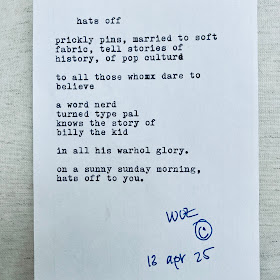 hats off
prickly pins, married to soft
fabric, tell stories of
history, of pop culture
to all those whomx dare to
believe
a word nerd
turned type pal
knows the story of
billy the kid
in all his warhol glory.
on a sunny sunday morning,
hats off to you.
©
13 apr 25